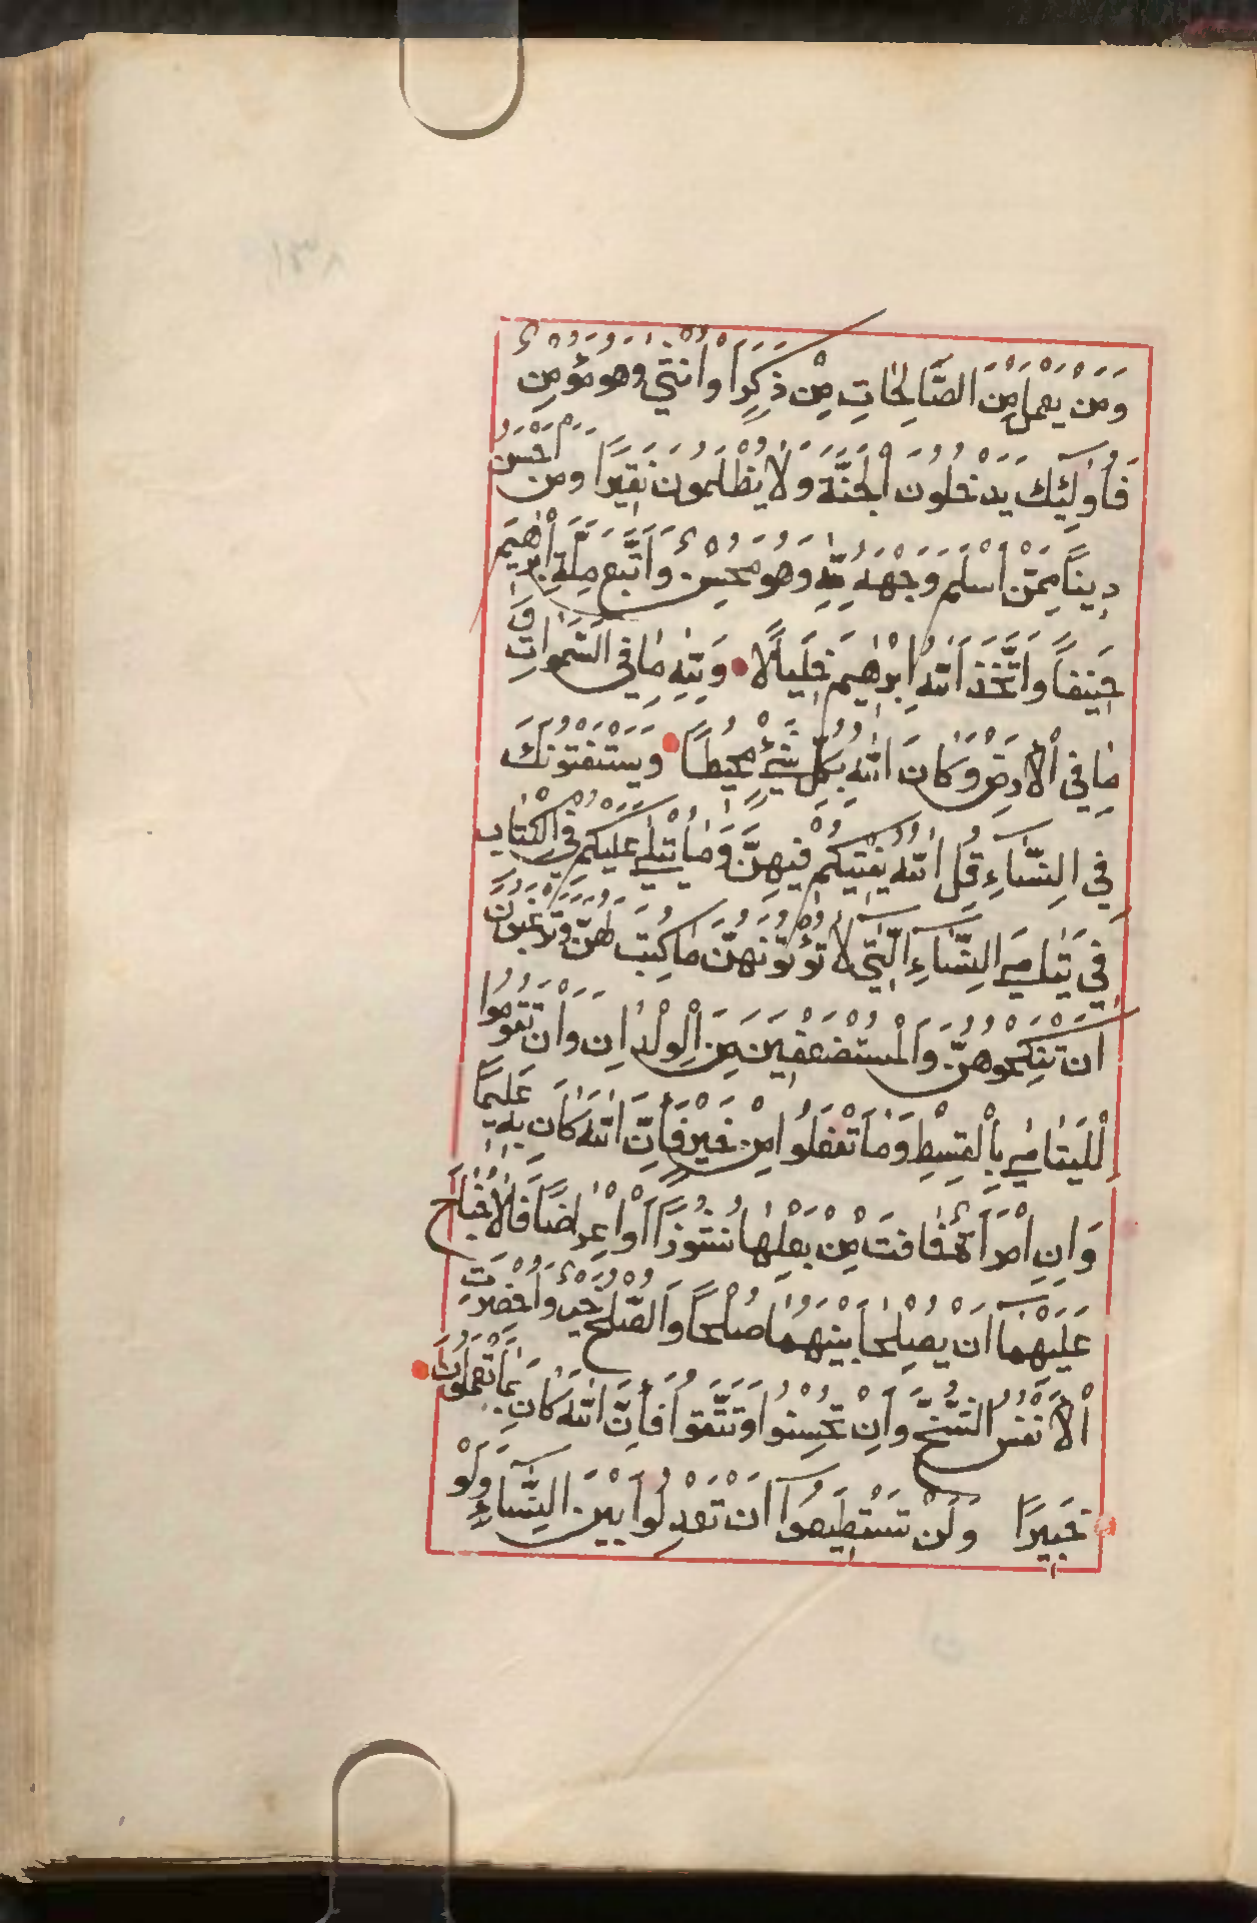 وَمَنْ يَعْمَلْ مِنَ الصَّالِحَاتِ مِنْ ذَكَرٍ اَوْ اُنْثٰى وَهُوَ مُؤْمِنٌ
فَاُولٰئِكَ يَدْخُلُونَ الْجَنَّةَ وَلَا يُظْلَمُونَ نَقِيرًا وَمَنْ اَحْسَنُ
دِينًا مِمَّنْ اَسْلَمَ وَجْهَهُ لِلّٰهِ وَهُوَ مُحْسِنٌ وَاتَّبَعَ مِلَّةَ اِبْرٰهِيمَ
حَنِيفًا وَاتَّخَذَ اللّٰهُ اِبْرٰهِيمَ خَلِيلًا وَلِلّٰهِ مَا فِي السَّمٰوَاتِ وَ
مَا فِي الْاَرْضِ وَكَانَ اللّٰهُ بِكُلِّ شَيْءٍ مُحِيطًا وَيَسْتَفْتُونَكَ
فِي النِّسَاءِ قُلِ اللّٰهُ يُفْتِيكُمْ فِيهِنَّ وَمَا يُتْلٰى عَلَيْكُمْ فِي الْكِتَابِ
فِي يَتٰامَى النِّسَاءِ الّٰتِي لَا تُؤْتُونَهُنَّ مَا كُتِبَ لَهُنَّ وَتَرْغَبُونَ
اَنْ تَنْكِحُوهُنَّ وَالْمُسْتَضْعَفِينَ مِنَ الْوِلْدَانِ وَاَنْ تَقُومُوا
لِلْيَتَامٰى بِالْقِسْطِ وَمَا تَفْعَلُوا مِنْ خَيْرٍ فَاِنَّ اللّٰهَ كَانَ بِهِ عَلِيمًا
وَاِنِ امْرَاَةٌ خَافَتْ مِنْ بَعْلِهَا نُشُوزًا اَوْ اِعْرَاضًا فَلَا جُنَاحَ
عَلَيْهِمَا اَنْ يُصْلِحَا بَيْنَهُمَا صُلْحًا وَالصُّلْحُ خَيْرٌ وَاُحْضِرَتِ
الْاَنْفُسُ الشُّحَّ وَاِنْ تُحْسِنُوا وَتَتَّقُوا فَاِنَّ اللّٰهَ كَانَ بِمَا تَعْمَلُونَ
خَبِيرًا وَلَنْ تَسْتَطِيعُوا اَنْ تَعْدِلُوا بَيْنَ النِّسَاءِ وَلَوْ